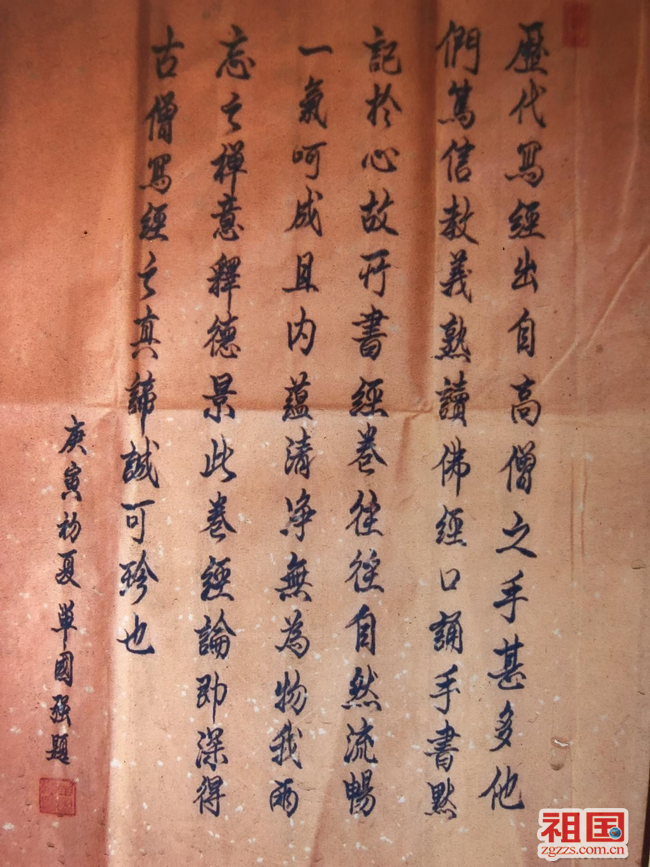 歷代寫經出自高僧之手甚多他
們篤信教義熟讀佛經口誦手書默
記於心故所書經卷往往自然流暢
一氣呵成且內蘊清净無為物我兩
忘之禅意釋德景此卷經論即深得
古僧寫經之真諦誠可珍也
庚寅初夏單國強題
祖国
zgzzs.com.cn